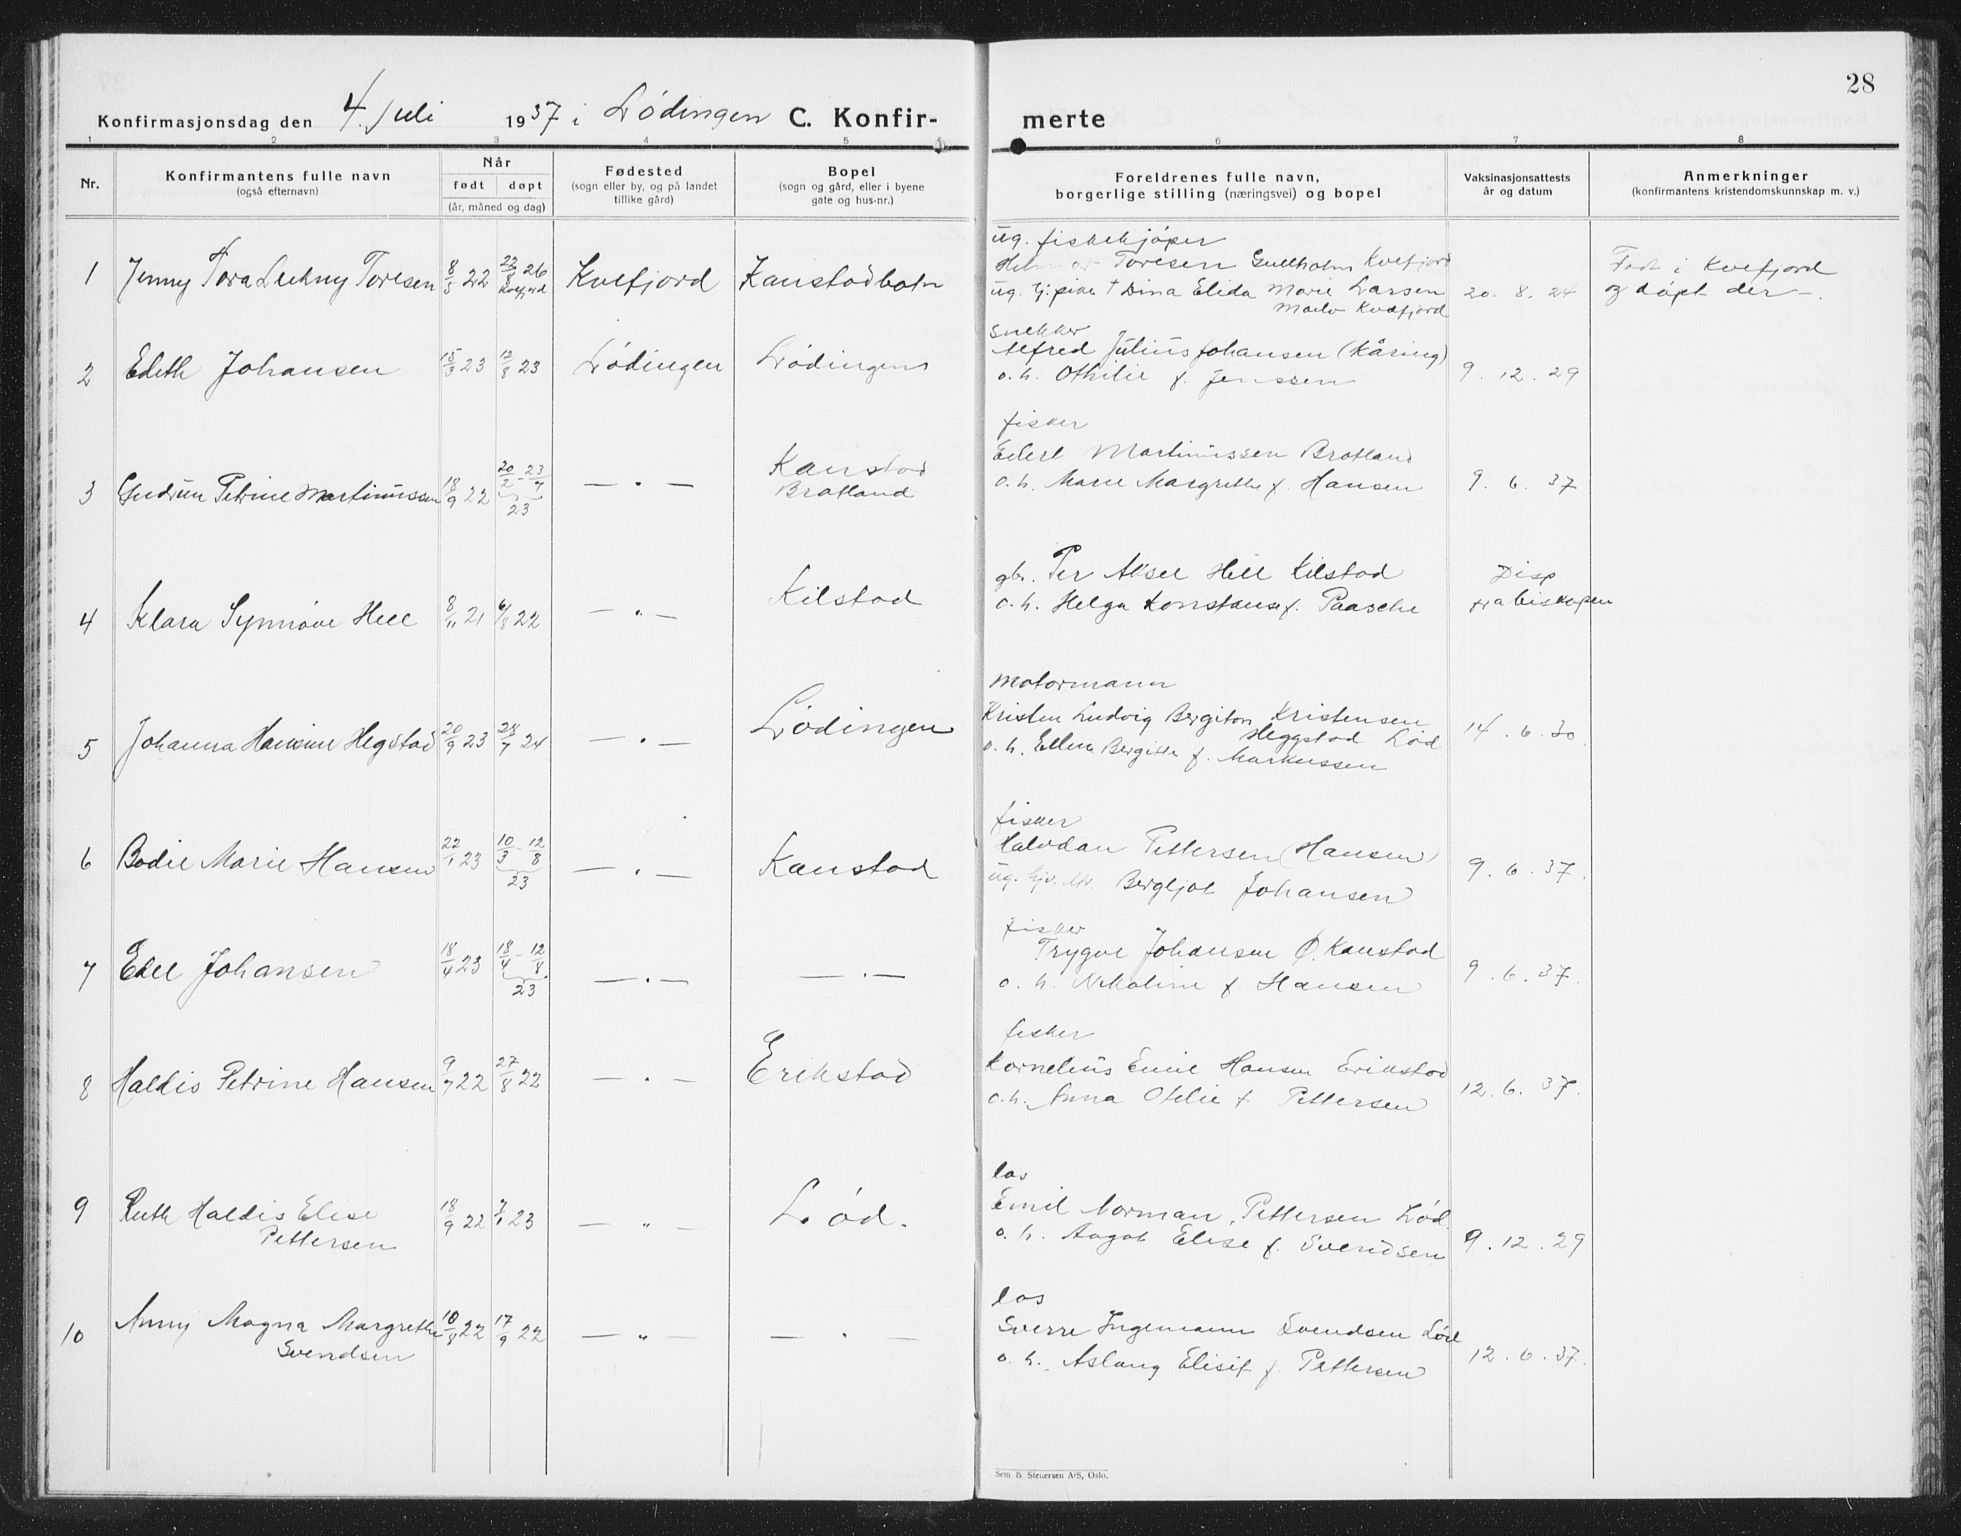 28
Konfirmasjonsdag den 4. Juli 1937 i Lødingen C. Konfirmerte
1 2 3 4 5 6 7 8
Nr. Konfirmantens fulle navn (også efternavn) Når født døpt (år, måned og dag) Fødested (sogn eller by, og på landet tillike gård) Bopel (sogn og gård, eller i byene gate og hus-nr.) Foreldrenes fulle navn, borgerlige stilling (næringsvei) og bopel Vaksinasjonsattests år og datum Anmerkninger (konfirmantens kristendomskunnskap m. v.)
ug. fiskekjøper
1 Jenny Tora Toresen 8/5 22 22/8 26 Kvefjord Kvefjord Kanstadbotn Toresen Gullholm Kvefjord Født i Kvefjord
ug. † Dina Elida Marie Larsen 20. 8. 24 og døpt der –.
Kvefjord
snekker
2 Edith Johansen 15/3 23 12/8 23 Lødingen Lødingen Alfred Julius Johansen (Kåring)
o. h. Othilie f. Jenssen 9. 12. 29
fisker
3 Gudrun Petrine Martinussen 18/9 22 20/2 - 23/7 23 — . — Kanstad Bratland Edert Martinussen Bratland
o. h. Marie Margrethe f. Hansen 9. 6. 37
4 Klara Synnøve Hell 8/11 21 6/8 22 — " — Kilstad gbr. Per Aksel Hell Kilstad Disp
o. h. Helga Konstanse f. Paasche fra biskopen
motormann
5 Johanna Hansine Hegstad 20/9 23 28/7 24 — . — Lødingen Kristen Ludvig Bergiton Kristensen
Heggstad Lød 14. 6. 30
o. h. Ellen Bergitte f. Markussen
fisker
6 Bodil Marie Hansen 22/1 23 10/3 - 12/8 23 — . — Kanstad Halvdan Pettersen (Hansen)
ug. Bergljot Johansen 9. 6. 37.
fisker
7 Edel Johansen 18/4 23 18/4 - 12/8 23 — . — — . — Trygve Johansen Ø. Kanstad
o. h. Nikoline f. Hansen 9. 6. 37.
fisker
8 Haldis Petrine Hansen 9/7 22 27/8 22 — . — Erikstad Kornelius Emil Hansen Erikstad
o. h. Anna Otelie f. Pettersen 12. 6. 37.
los
9 Ruth Haldis Elise Pettersen 18/9 22 7/1 23 — " — Lød. Emil Norman Pettersen Lød
o. h. Aagot Elise f. Svendsen 9. 12. 29
los
10 Anny Magna Margrethe Svendsen 10/8 22 17/9 22 — " — — . — Sverre Ingemann Svendsen Lød
o. h. Aslaug Elisif f. Pettersen 12. 6. 37.
Sem & Stenersen A/S, Oslo.